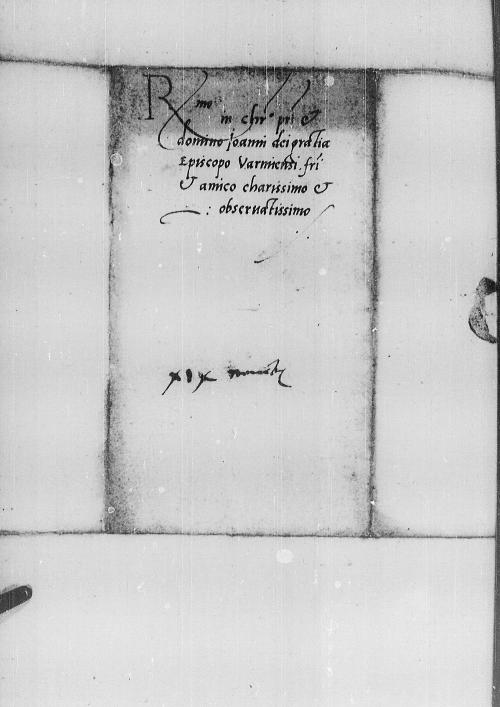 Rmo
in chro pri &
domino Joanni dei gratia
Episcopo Varmiensi. fri
& amico charissimo &
: observatissimo
XIX